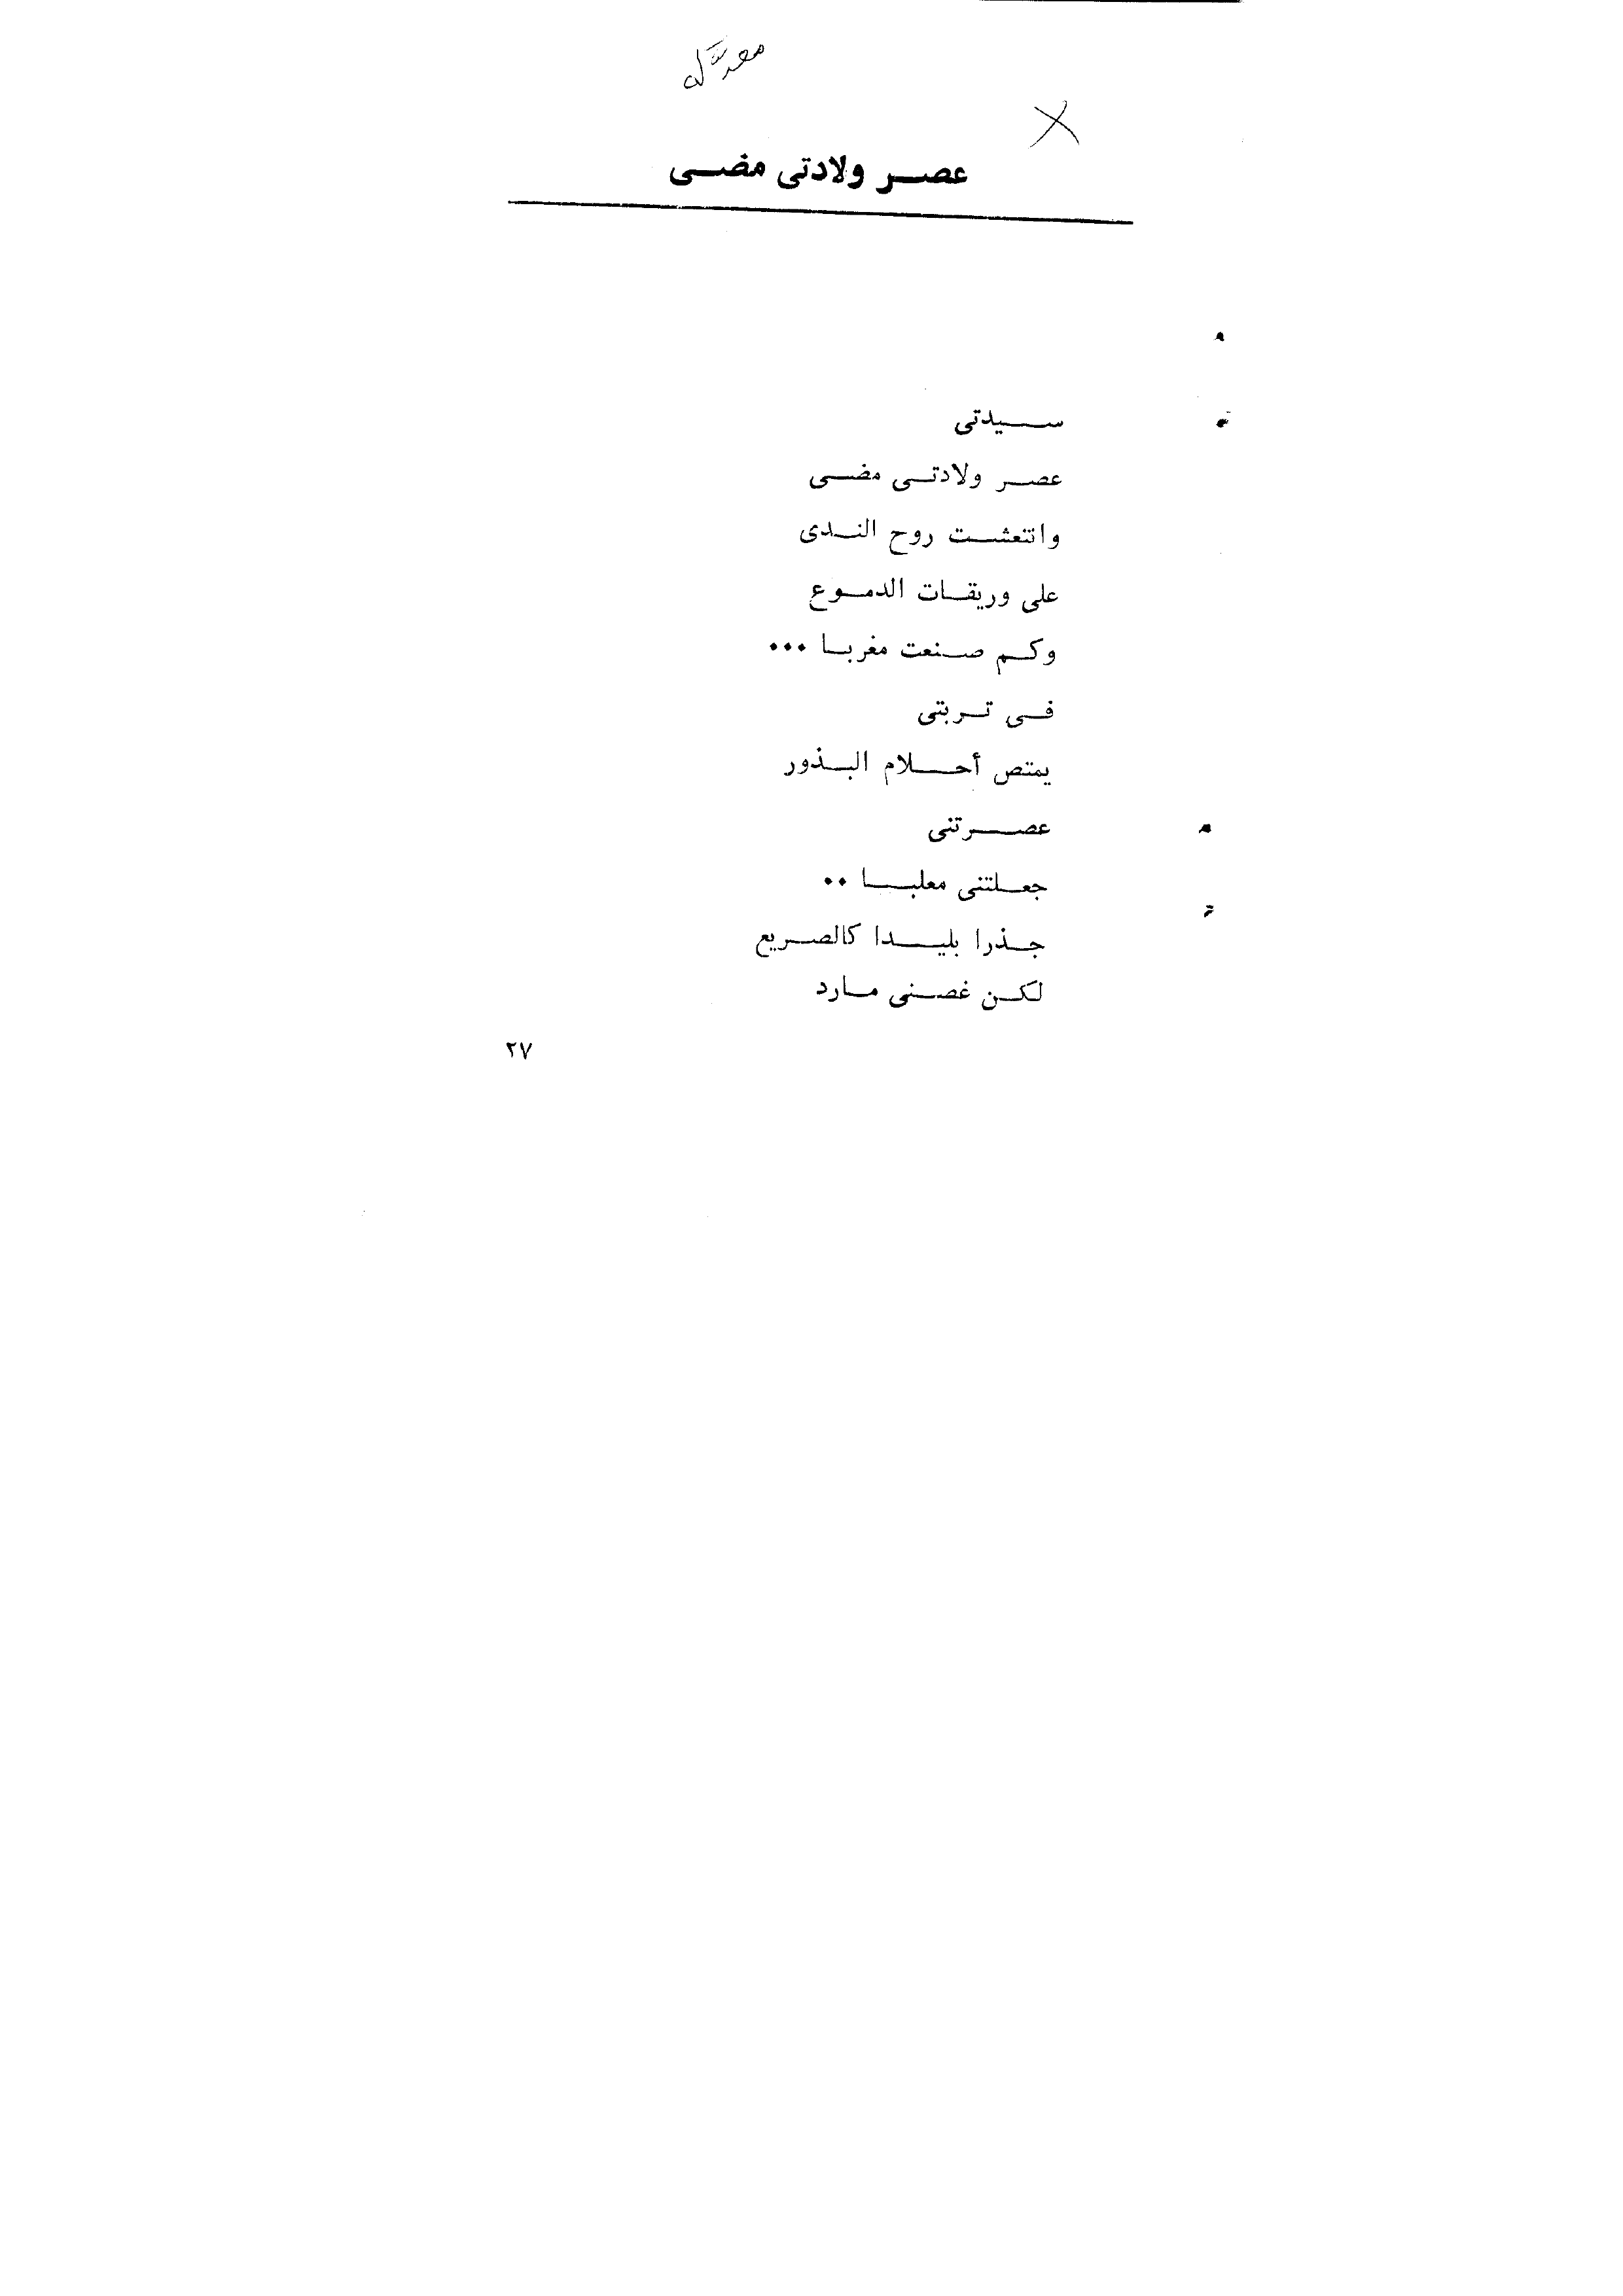 عصر ولادتى مضى
سيدتى
عصر ولادتى مضى
وانتعشت روح الندى
على وريقات الدموع
وكم صنعت مغربا ...
فى تربتى
يمتص أحلام البذور
عصرتنى
جعلتنى معلبا ..
جذرا بليدا كالصريع
لكن غصنى مارد
٢٧